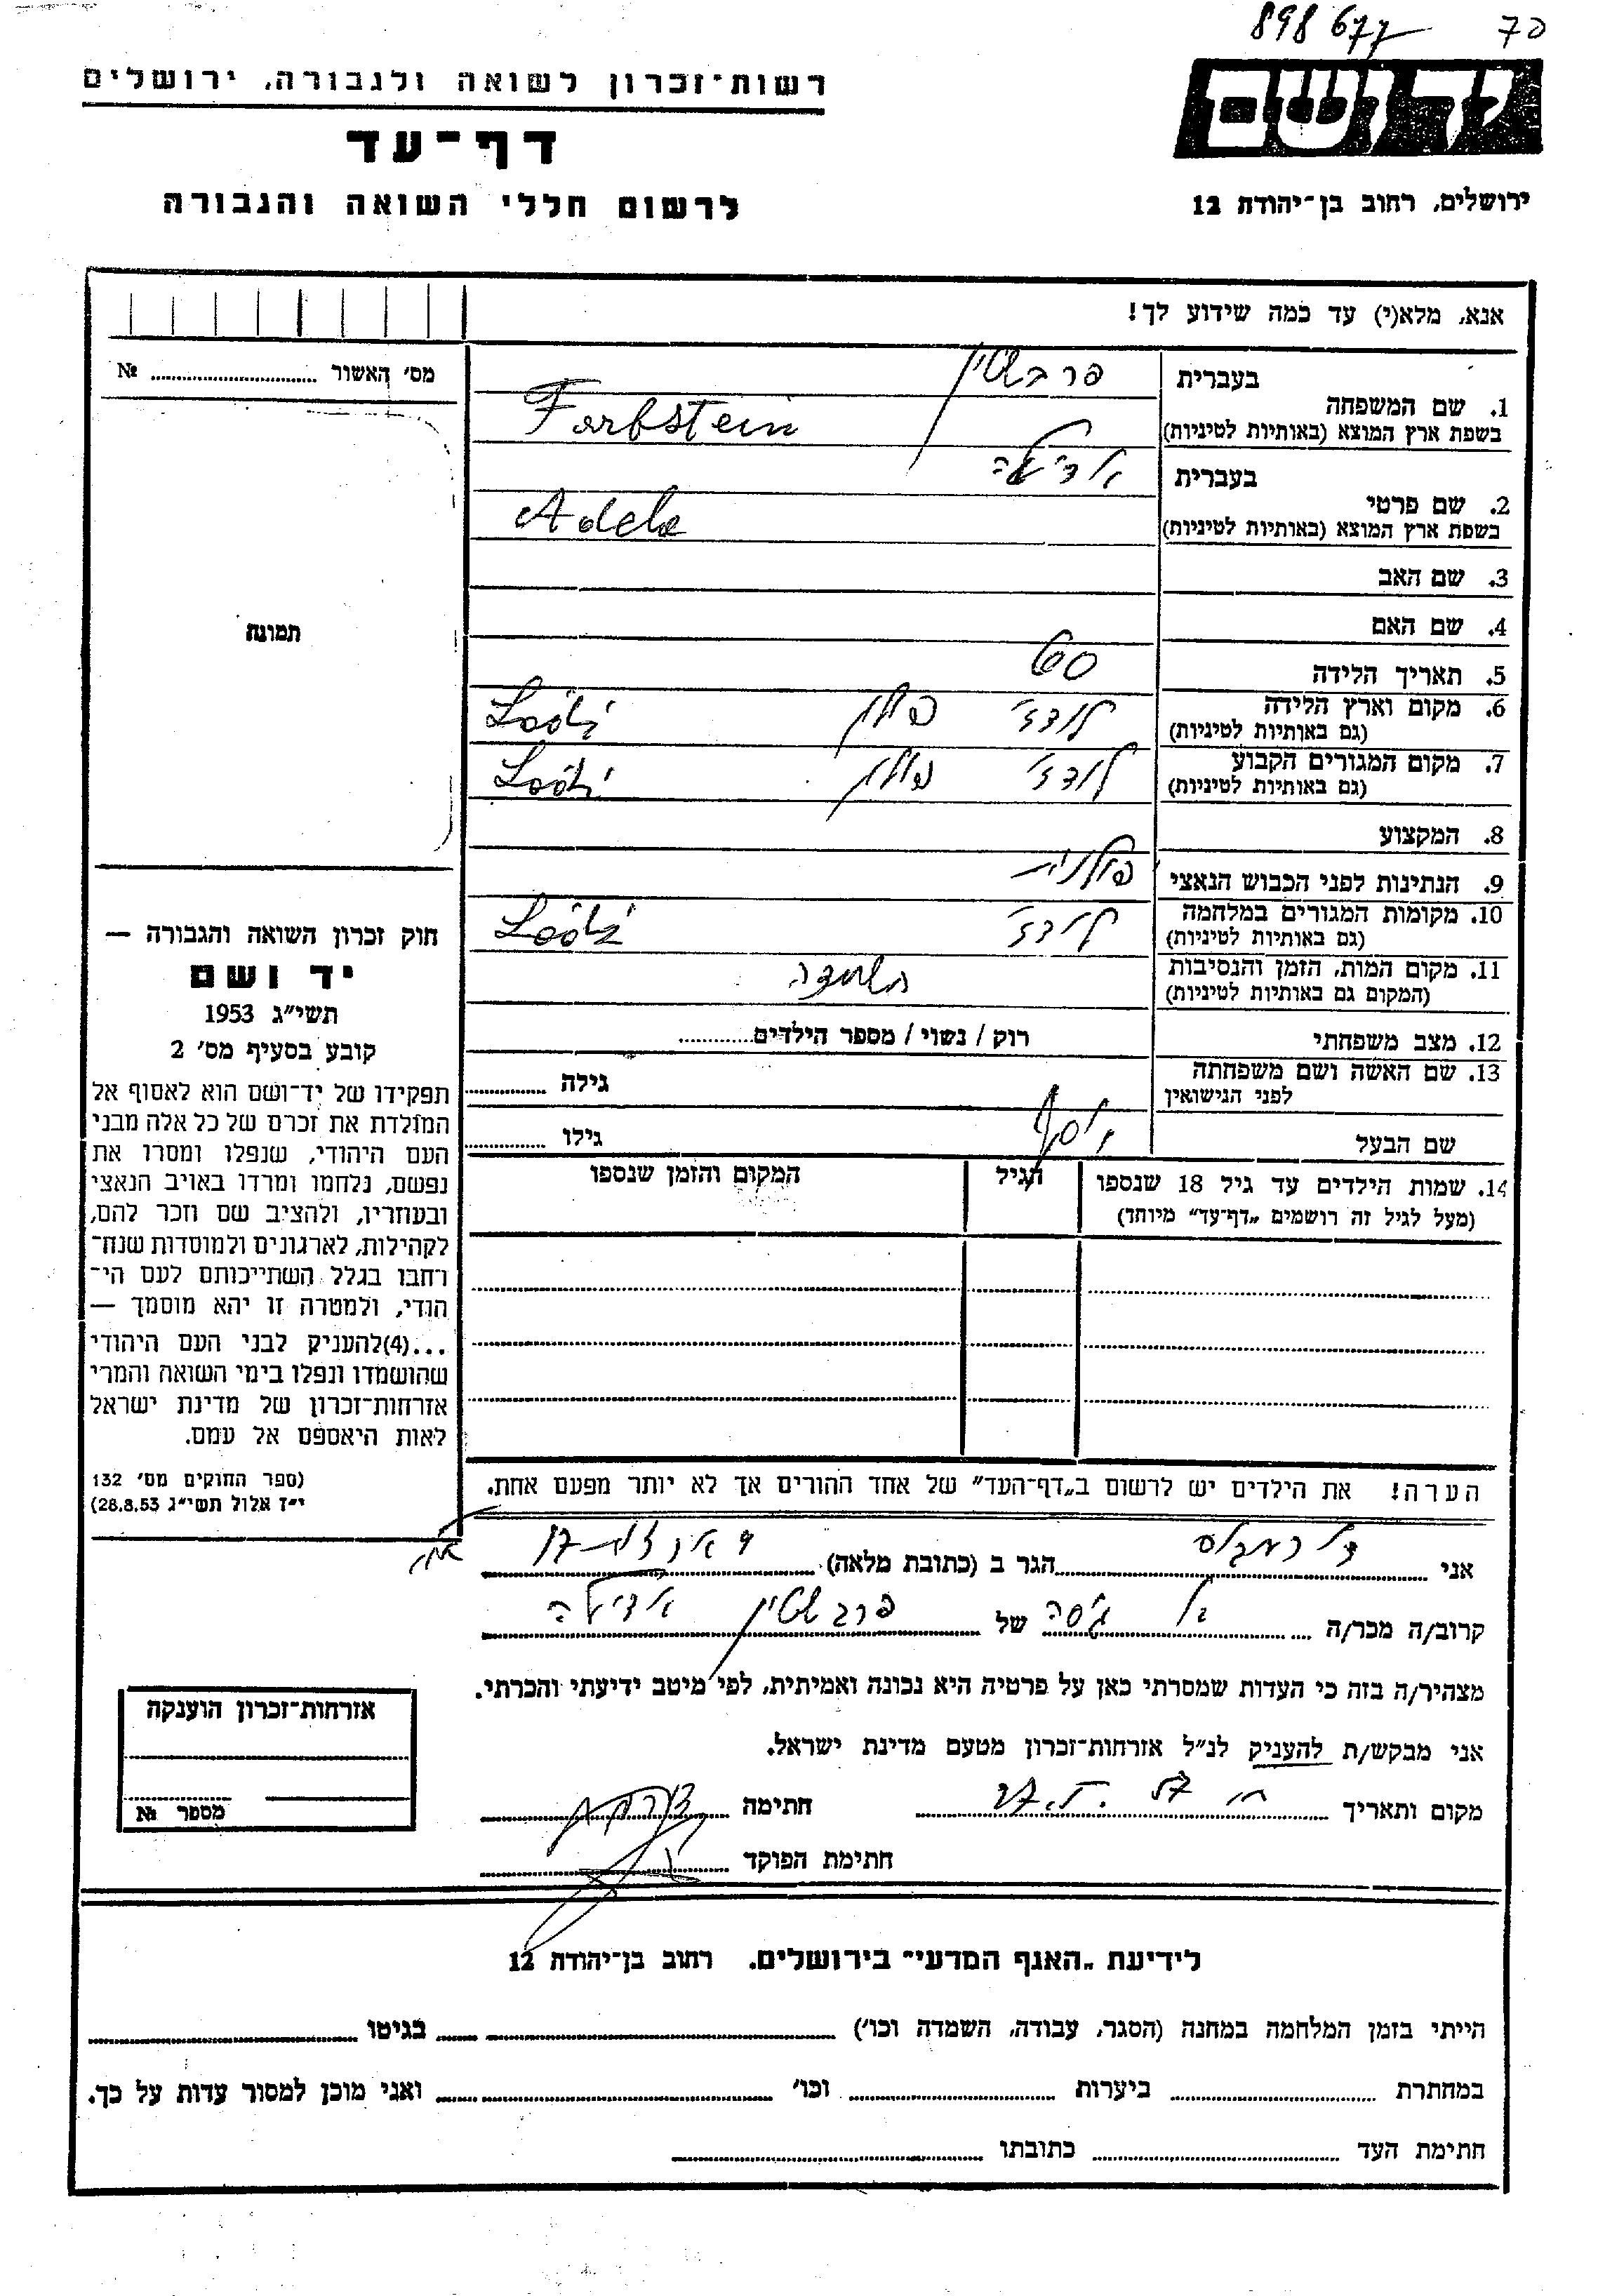 898677 פד
רשות־זכרון לשואה ולגבורה, ירושלים
יד ושם
דף־עד
לרשום חללי השואה והגבורה
ירושלים, רחוב בן־יהודה 12
אנא, מלא(י) עד כמה שידוע לך!
מס' האשור № 
בעברית פרבשטיין
1. שם המשפחה
בשפת ארץ המוצא (באותיות לטיניות) Farbstein
בעברית אדילה
2. שם פרטי
בשפת ארץ המוצא (באותיות לטיניות) Adela
3. שם האב
4. שם האם
תמונה
5. תאריך הלידה 60
6. מקום וארץ הלידה לודז' פולין Łódź
(גם באותיות לטיניות)
7. מקום המגורים הקבוע לודז' פולין Łódź
(גם באותיות לטיניות)
8. המקצוע
9. הנתינות לפני הכבוש הנאצי פולנית
10. מקומות המגורים במלחמה לודז' Łódź
(גם באותיות לטיניות)
11. מקום המות, הזמן והנסיבות השמדה
(המקום גם באותיות לטיניות)
12. מצב משפחתי רוק / נשוי / מספר הילדים
13. שם האשה ושם משפחתה גילה
לפני הנישואין
שם הבעל יוסף גילו
14. שמות הילדים עד גיל 18 שנספו הגיל המקום והזמן שנספו
(מעל לגיל זה רושמים „דף־עד" מיוחד)
חוק זכרון השואה והגבורה —
יד ושם
תשי"ג 1953
קובע בסעיף מס' 2
תפקידו של יד־ושם הוא לאסוף אל
המולדת את זכרם של כל אלה מבני
העם היהודי, שנפלו ומסרו את
נפשם, נלחמו ומרדו באויב הנאצי
ובעוזריו, ולהציב שם וזכר להם,
לקהילות, לארגונים ולמוסדות שנח־
רחבו בגלל השתייכותם לעם הי־
הודי, ולמטרה זו יהא מוסמך —
...(4)להעניק לבני העם היהודי
שהושמדו ונפלו בימי השואה והמרי
אזרחות־זכרון של מדינת ישראל
לאות היאספם אל עמם.
(ספר החוקים מס' 132
י"ז אלול תשי"ג 28.8.53)
הערה! את הילדים יש לרשום ב„דף־העד" של אחד ההורים אך לא יותר מפעם אחת.
אני הגר ב (כתובת מלאה)
קרוב/ה מכר/ה גיסה של פרבשטיין אדילה
מצהיר/ה בזה כי העדות שמסרתי כאן על פרטיה היא נכונה ואמיתית, לפי מיטב ידיעתי והכרתי.
אני מבקש/ת להעניק לנ"ל אזרחות־זכרון מטעם מדינת ישראל.
מקום ותאריך חתימה
חתימת הפוקד
אזרחות־זכרון הוענקה
מספר №
לידיעת „האגף המדעי" בירושלים. רחוב בן־יהודה 12
הייתי בזמן המלחמה במחנה (הסגר, עבודה, השמדה וכו') בגיטו
במחתרת ביערות וכו' ואני מוכן למסור עדות על כך.
חתימת העד כתובתו